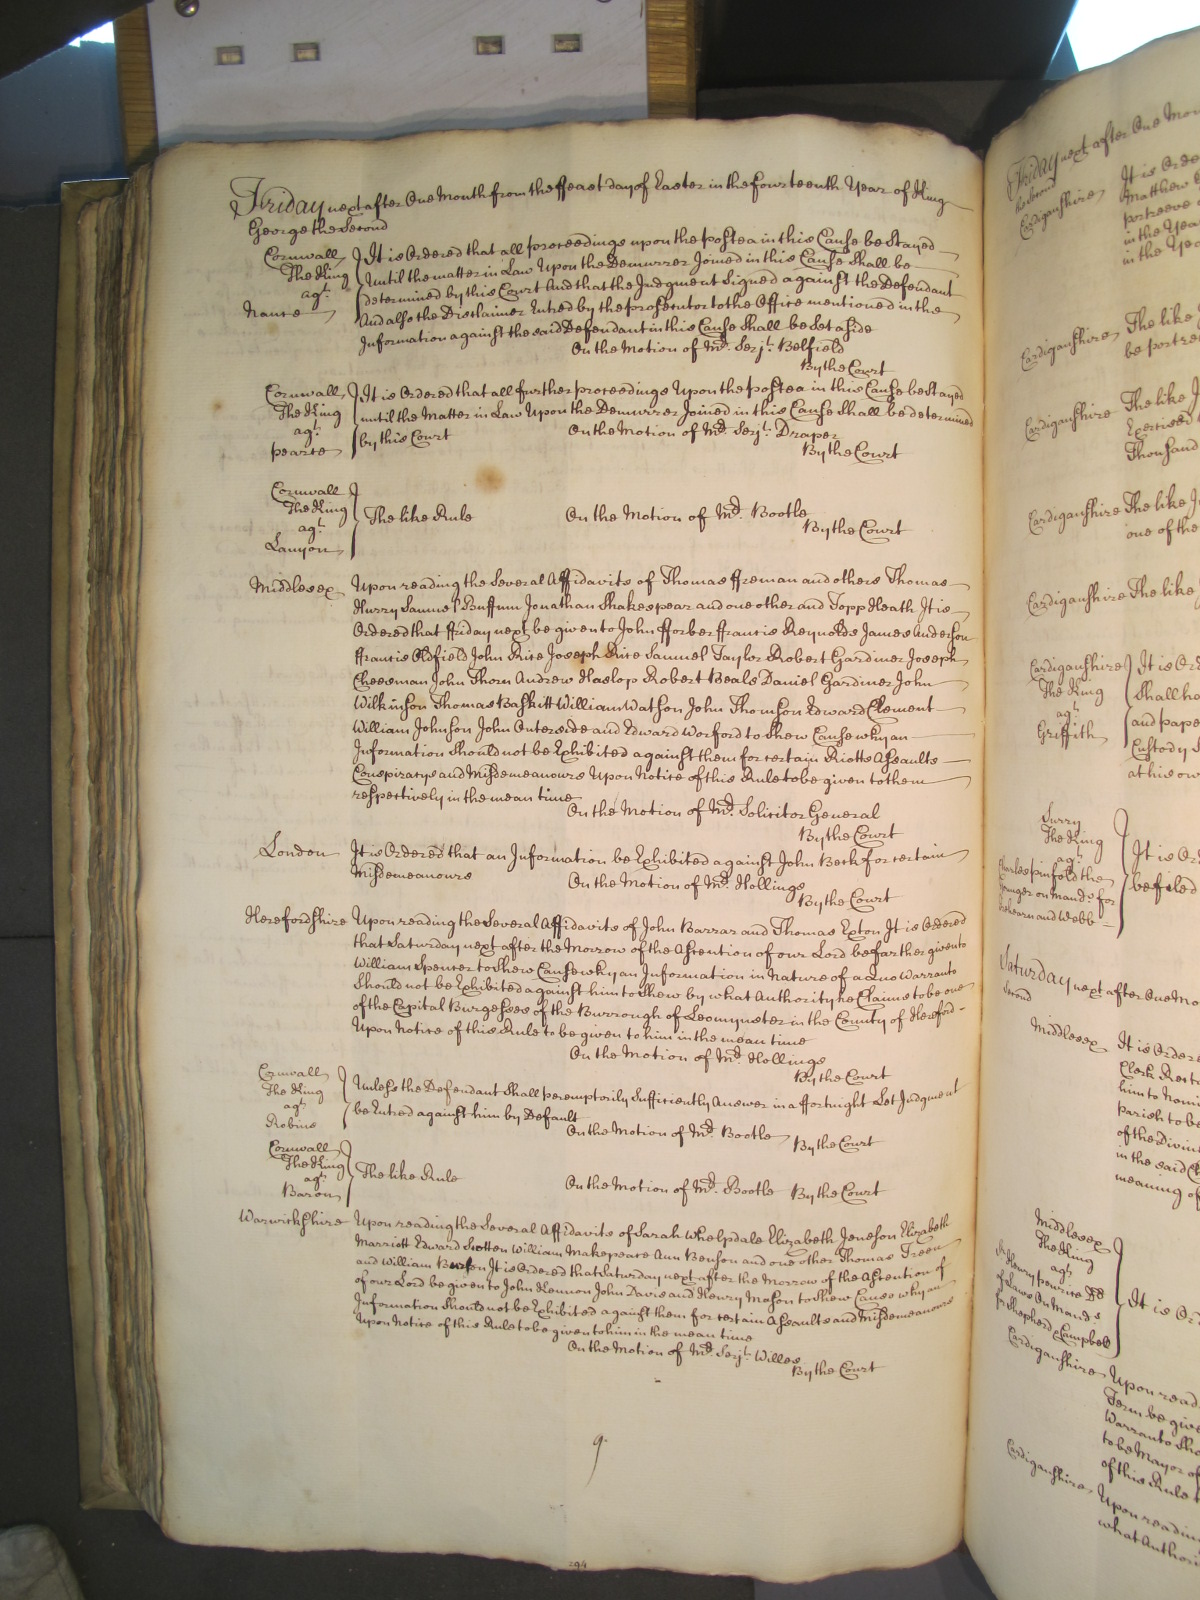 Friday next after One Month from the ffeast day of Easter in the fourteenth Year of King
George the Second
Cornwall
The King
agt.
Nance
It is Ordered that all proceedings upon the postea in this Cause be Stayed
Until the matter in Law Upon the Demurrer Joined in this Cause Shall be
determined by this Court And that the Judgment Signed against the Defendant
And also the Disclaimer Entred by the prosecutor to the Office mentioned in the
Information against the said Defendant in this Cause Shall be Set aside
On the Motion of Mr. Serjt. Belfield
By the Court
Cornwall
The King
agt.
pearce
It is Ordered that all further proceedings Upon the postea in this Cause be Stayed
until the Matter in Law Upon the Demurrer Joined in this Cause Shall be determined
by this Court On the Motion of Mr. Serjt. Draper
By the Court
Cornwall
The King
agt.
Lanyon
The like Rule On the Motion of Mr. Bootle
By the Court
Middlesex Upon reading the Several Affidavits of Thomas ffreman and others Thomas
Hurry Samuel Buffum Jonathan Shakespear and one other and Topp Heath It is
Ordered that ffriday next be given to John fforbes ffrancis Reynolds James Anderson
ffrancis Oldfield John Rice Joseph Rice Samuel Taylor Robert Gardiner Joseph
Cheesman John Thorn Andrew Haslop Robert Beals Daniel Gardiner John
Wilkinson Thomas Baskitt William Watson John Thomson Edward Clement
William Johnson John Outerside and Edward Worford to Shew Cause why an
Information Should not be Exhibited against them for certain Riotts Assaults
Conspiracys and Misdemeanours Upon Notice of this Rule to be given to them
respectively in the mean time
On the Motion of Mr. Solicitor General
By the Court
London It is Ordered that an Information be Exhibited against John Beck for certain
Misdemeanours On the Motion of Mr. Hollings
By the Court
Herefordshire Upon reading the Several Affidavits of John Barrar and Thomas Exton It is Ordered
that Saturday next after the Morrow of the Ascention of our Lord be farther given to
William Spencer to Shew Cause why an Information in Nature of a Quo Warranto
Should not be Exhibited against him to Shew by what Authority he Claims to be one
of the Capital Burgesses of the Burrough of Leomynster in the County of Hereford
Upon Notice of this Rule to be given to him in the mean time
On the Motion of Mr. Hollings
By the Court
Cornwall
The King
agt.
Robins
Unless the Defendant Shall peremptorily Sufficiently Answer in a ffortnight Let Judgment
be Entred against him by Default
On the Motion of Mr. Bootle By the Court
Cornwall
The King
agt.
Baron
The like Rule On the Motion of Mr. Bootle By the Court
Warwickshire Upon reading the Several Affidavits of Sarah Whelpdale Elizabeth Jeneson Elizabeth
Marriott Edward Scotten William Makepeace Ann Benson and one other Thomas Treen
and William It is Ordered that Saturday next after the Morrow of the Ascention of
of our Lord be given to John Hennon John Davis and Henry Mason to Shew Cause why an
Information Should not be Exhibited against them for certain Assaults and Misdemeanours
Upon Notice of this Rule to be given to him in the mean time
On the Motion of Mr. Serjt. Willes
By the Court
9.
294
Friday next after One Mon
the Second
Cardiganshire It is Orde
Matthew
portreeve
in the Yea
in the Yea
Cardiganshire The like
be portre
Cardiganshire The like J
Exercised
Thousand
Cardiganshire The like J
one of the
Cardiganshire The like
Cardiganshire
The King
agt.
Griffith
It is Or
Shall ha
and pape
Custody
at his ow
Surry
The King
agt.
Charles pinfold the
Younger on Mands. for
and Webb
It is Or
be filed
Saturday next after One Mo
Second
Middlesex It is Ordere
Clerk Rect
him to Nomi
parish to be
of the Divin
in the said Ch
meaning of
Middlesex
The King
agt.
of Laws On Mands.
for Shepherd & Campbell
It is Or
Cardiganshire Upon read
Term be give
Warranto Sho
to be Mayor of
of this Rule
Cardiganshire Upon readin
what Authori